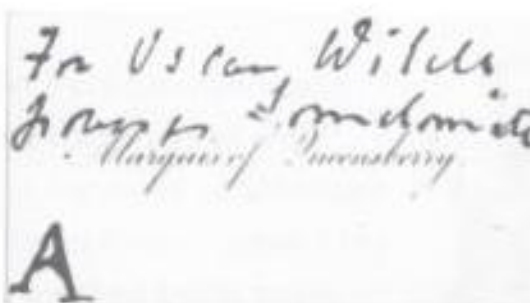 For Oscar Wilde
Somdomite
Marquis of Queensberry
A